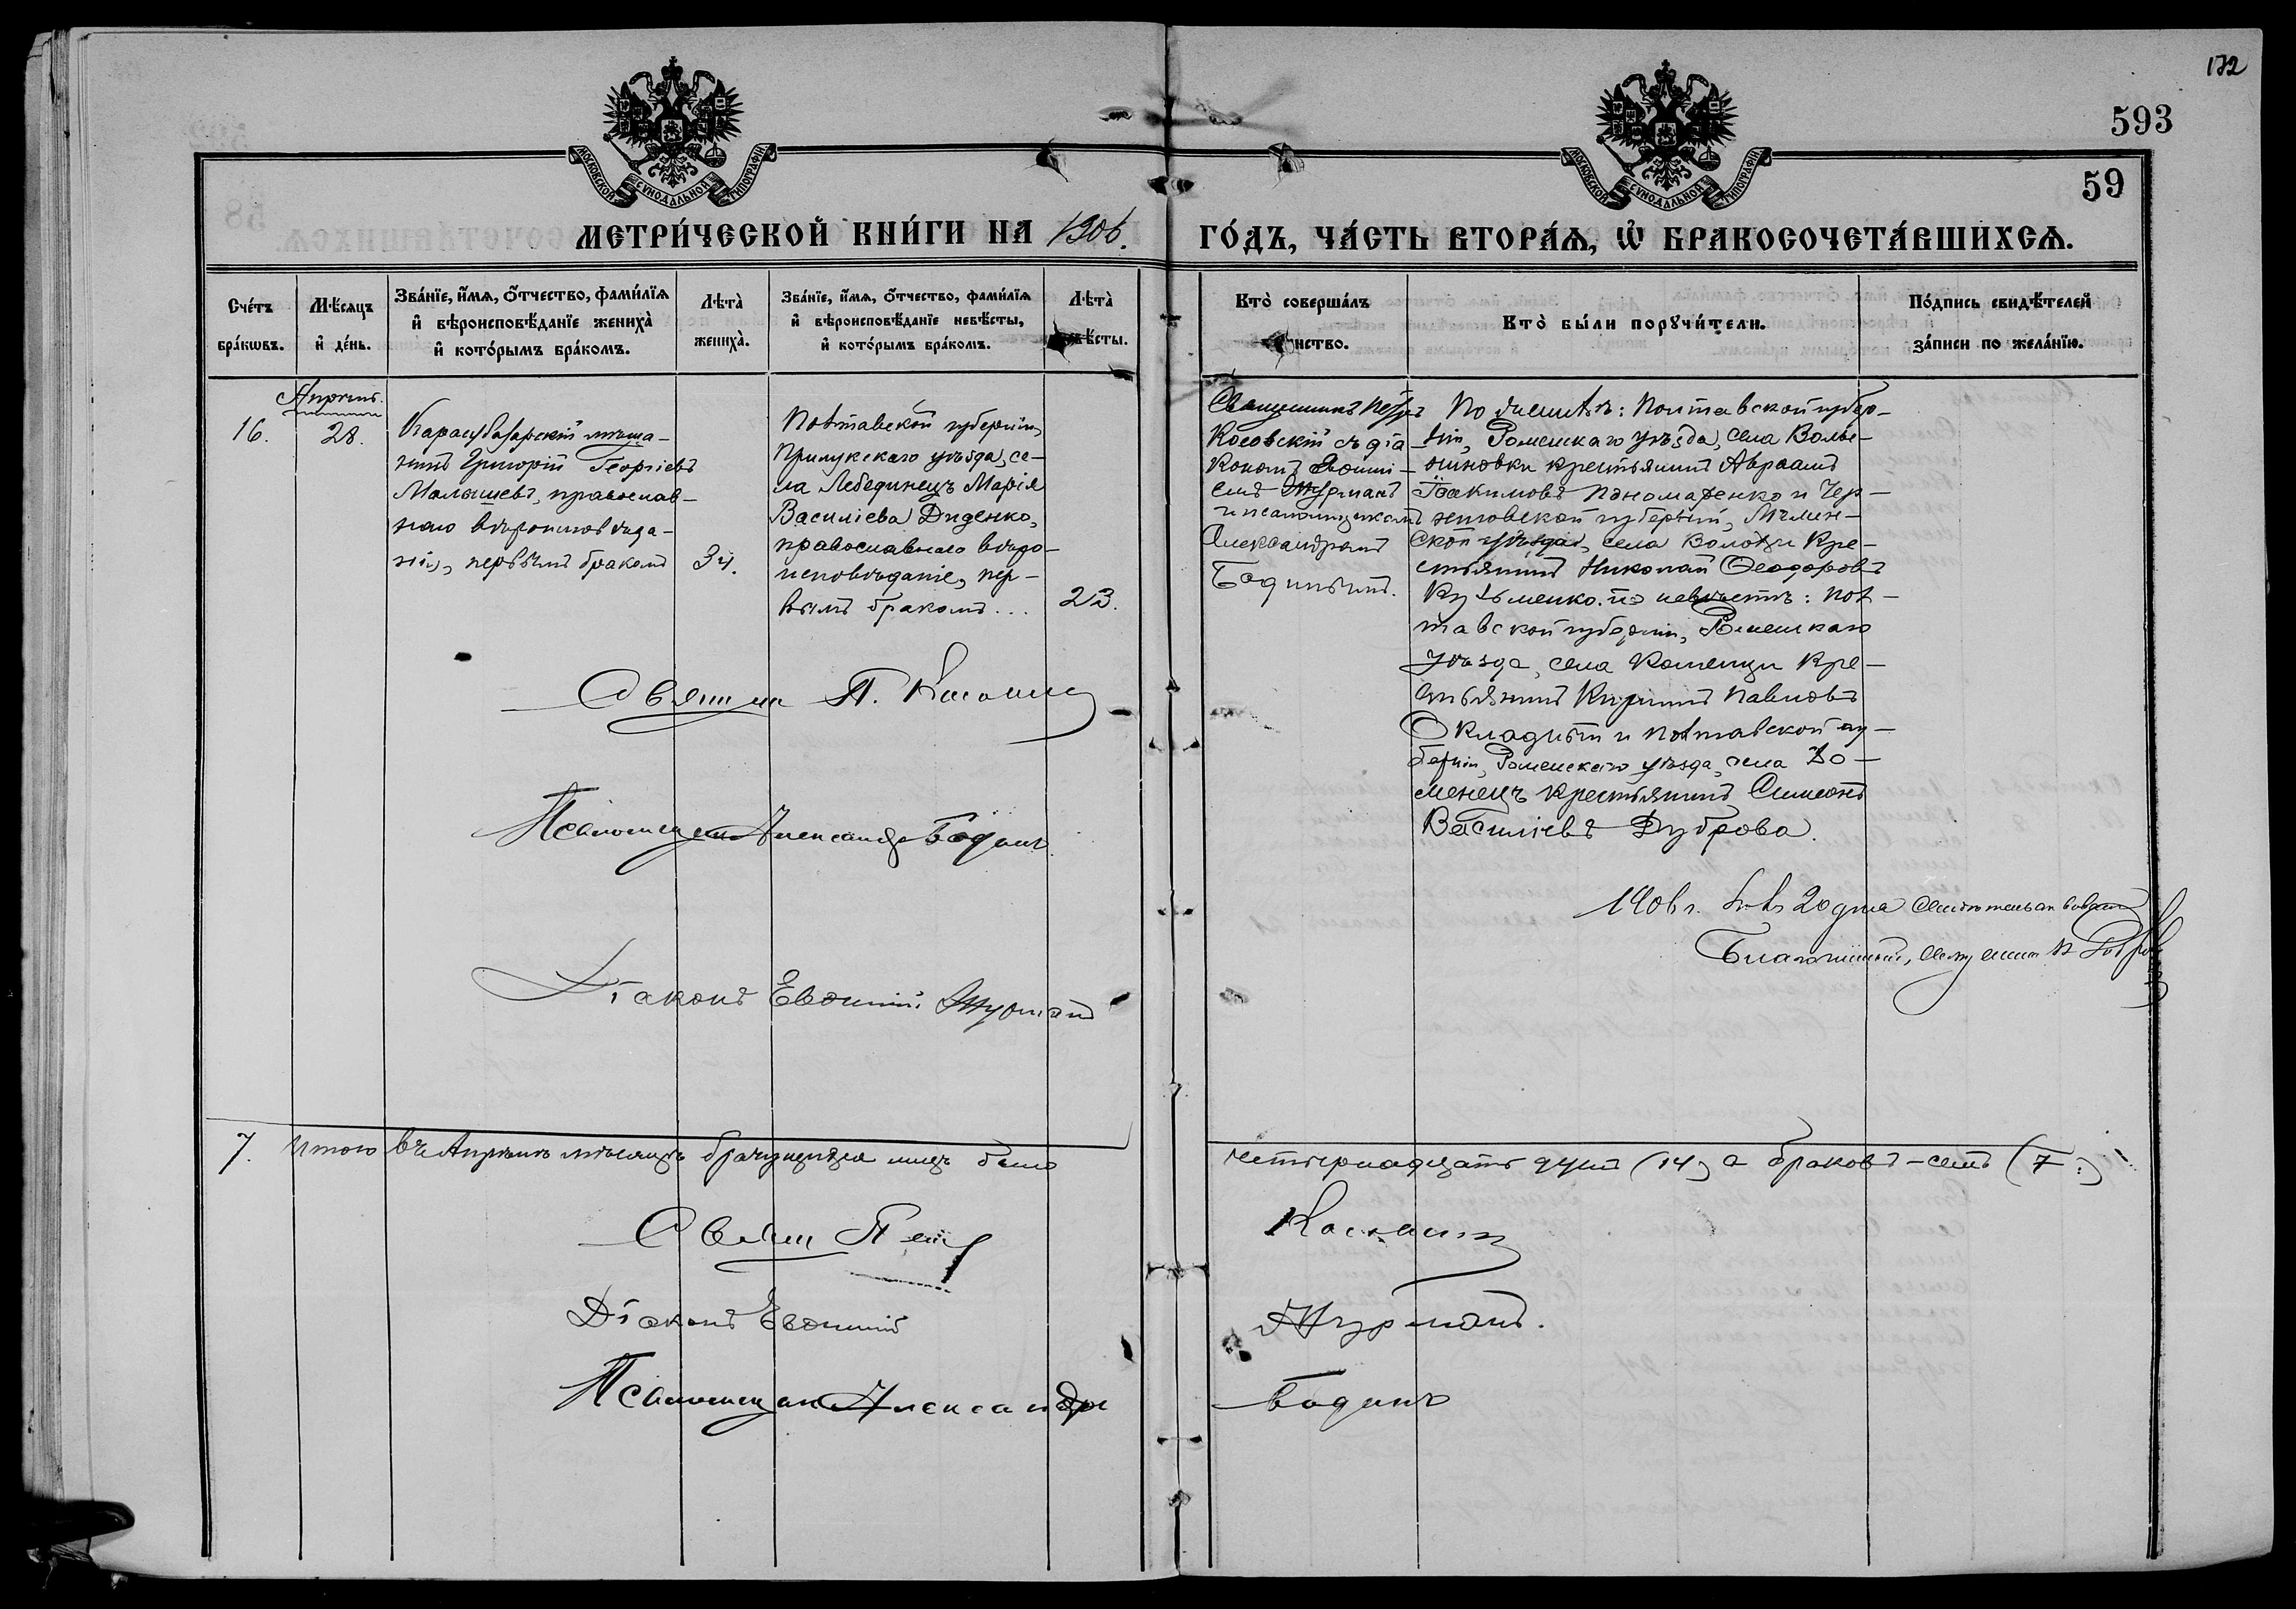 172
593
59
МОСКОВСКОЙ СѴНОДАЛЬНОЙ ТИПОГРАФІИ
МОСКОВСКОЙ СѴНОДАЛЬНОЙ ТИПОГРАФІИ
МЕТРИ́ЧЕСКОЙ КНИ́ГИ НА 1906.
ГО́ДЪ, ЧА́СТЬ ВТОРА́Я, Ѽ БРАКОСОЧЕТА́ВШИХСЯ.
Сче́тъ бра́кѡвъ.
Мѣ́сяцъ и҆ де́нь.
Зва́нїе, и҆́мя, ѻ҆́тчество, фами́лїя и҆ вѣроисповѣ́данїе жениха̀ и҆ кото́рымъ бра́комъ.
Лѣта̀ жениха̀.
Зва́нїе, и҆́мя, ѻ҆́тчество, фами́лїя и҆ вѣроисповѣ́данїе невѣ́сты, и҆ кото́рымъ бра́комъ.
Лѣта̀ вѣ́сты.
Кто̀ соверша́лъ нство.
Кто̀ бы́ли порꙋчи́тели.
По́дпись свидѣ́телей за́писи по жела́нїю.
Апрѣль.
16.
28.
Карасубазарскій мѣща-
нинъ Григорій Георгіевъ
Малышевъ, православ-
наго вѣроисповѣда-
нія, первымъ бракомъ
34.
Полтавской губерніи,
Прилукскаго уѣзда, се-
ла Лебединецъ Марія
Васильева Диденко,
православнаго вѣро-
исповѣданіе, пер-
вымъ бракомъ...
23.
Священникъ Петръ
Косовскій съ діа-
кономъ Евфимі-
емъ Журманъ
и псаломщикомъ
Александромъ
Бодинымъ.
По женихѣ: Полтавской губер-
ніи, Роменскаго уѣзда, села Волын-
шиновки крестьянинъ Авраамъ
Іоакимовъ Пономаренко и Чер-
ниговской губерніи, Мглин-
ской уѣзда, села Кре-
стьянинъ Николай Ѳеодоровъ
Кузьменко. по невѣстѣ: Пол-
тавской губерніи, Роменскаго
уѣзда, села Коменци Кре-
стьянинъ Кирилъ Павловъ
Окладный и Полтавской гу-
берніи, Роменскаго уѣзда, села
менецъ Крестьянинъ Симеонъ
Васильевъ Дуброва.
Священ П. Косовскій
Псаломщикъ Александръ Бодинъ.
Діаконъ Евфимій Журманъ
1906 г. 20 дня свидѣтельствовалъ
Благочинный, священник
7. Итого въ Апрѣлѣ мѣсяцѣ брачущихся лицъ было
четырнадцать душъ (14) а браковъ - семь (7.)
Свящ Петр Косовскій
Діаконъ Евфимій Журманъ.
Псаломщик Александръ Бодинъ